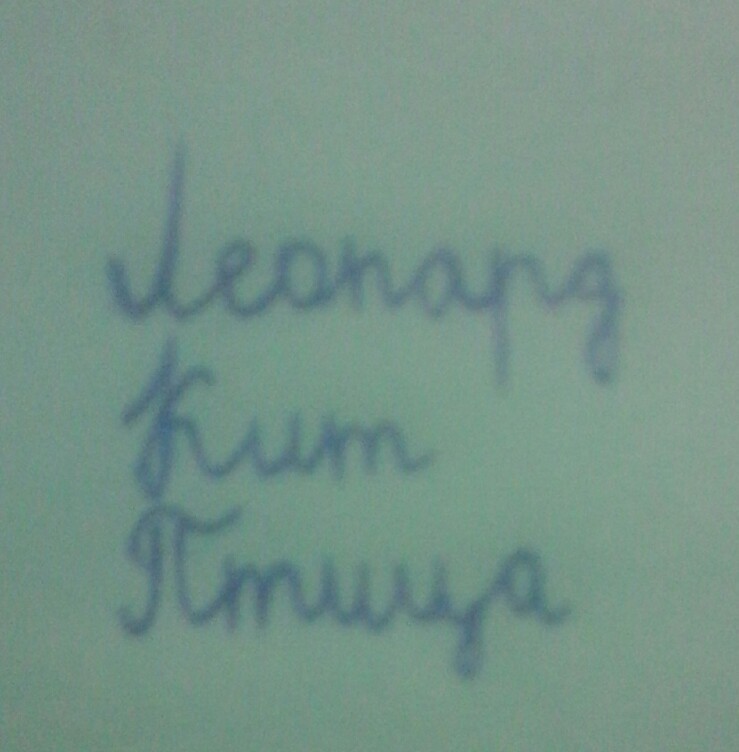 Леопард
Кит
Птица